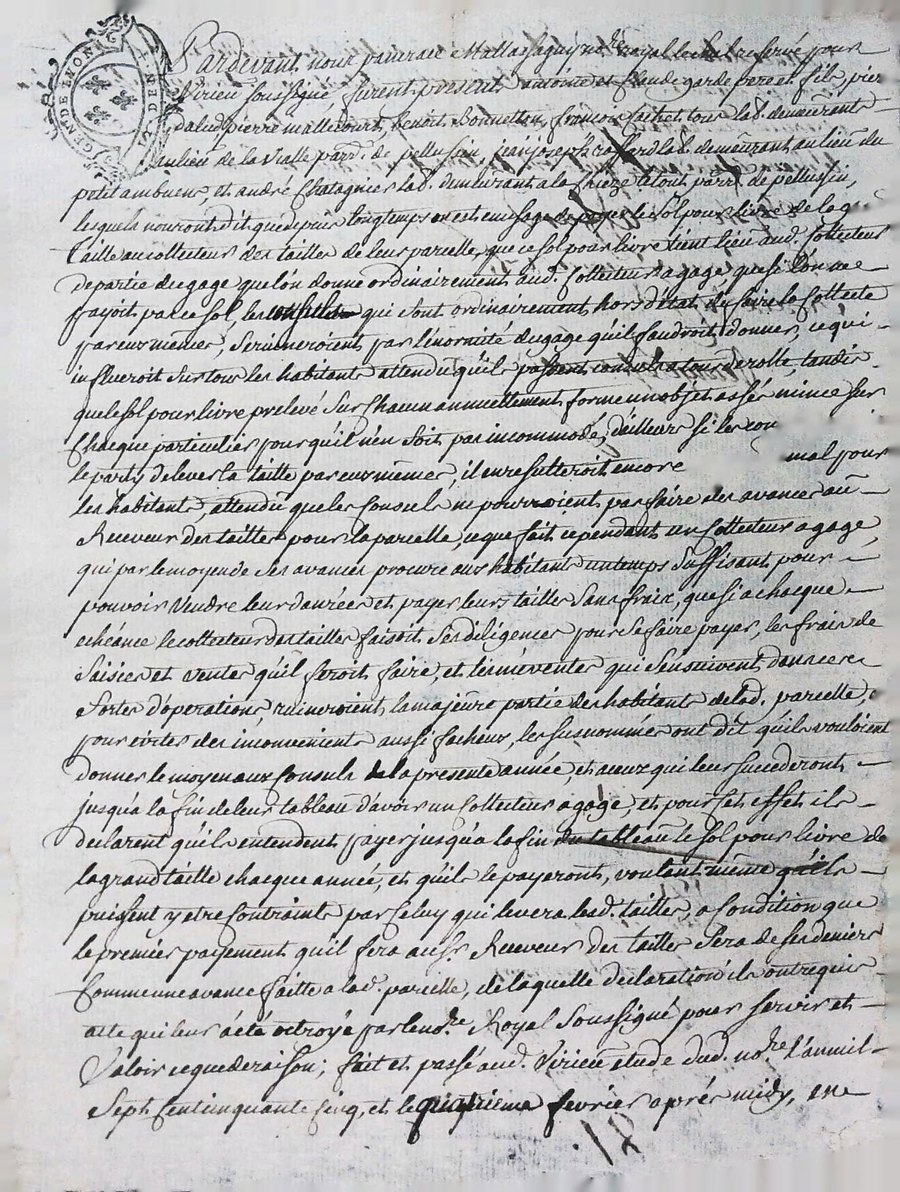 GEN DE LYON
Pardevant nous
Virieu soussigné furent presents antoine et Claude garde pere et fils, pier
dalud, pierre mattecourt, benoit bonnetton, françois tous lab. demeurants
au lieu de la Vialle parr. de pellussin, jean joseph lab. demeurant au lieu du
petit ambuens, et andré Chatagnier lab. demeurant a le tout parr. de pellissin,
lesquels nous ont dit que depuis longtemps on est en usage de payer le sol pour livre de la g
Taille au collecteur des tailles de leur parcelle, que ce sol pour livre tient lieu aud. Collecteur
de partie du gage que l'on donne ordinairement aud. Collecteur a gage que si l'on ne
payoit pas ce sol, les consuls qui sont ordinairement hors d'etat de faire la Collecte
par eux memes, se ruineroient par l'enormité du gage qu'il faudroit donner, ce qui
influeroit sur tous les habitants attendu qu'ils passent consuls a tour de rolle, tandis
que le sol pour livre prelevé sur chacun annuellement forme un objet assés mince sur
Chaque particulier pour qu'il n'en soit pas incommodé, d'ailleurs si les con
le party de lever la taille par eux memes, il en resulteroit encore mal pour
les habitants, attendu que les Consuls ne pourroient pas faire des avances au
Receveur des tailles pour la parcelle, ce que fait cependant un Collecteur a gage,
qui par le moyen de ses avances procure aux habitants un temps suffisant pour
pouvoir vendre leur danrées et payer leurs tailles sans fraix, que si a chaque
echéance le collecteur des tailles faisoit ses diligences pour se faire payer, les frais de
saisies et vente qu'il feroit faire, et les méventes qui s'ensuivent dans ces
sortes d'operations, ruineroient la majeure partie des habitants de lad. parcelle,
pour eviter des inconvenients aussi facheux, les susnommés ont dit qu'ils vouloient
donner le moyen aux Consuls de la presente année, et a ceux qui leur succederont
jusqu'a la fin de leur tableau d'avoir un Collecteur a gage, et pour cet effet ils
declarent qu'ils entendent payer jusqu'a la fin du tableau le sol pour livre de
la grand taille chacque année, et qu'ils le payeront, voulant même qu'ils
puissent y etre Contraints par Celuy qui levera lesd. tailles, a Condition que
le premier payement qu'il fera au sr. Receveur des tailles sera de ses deniers
Comme une avance faitte a lad. parcelle, de laquelle declaration ils ont requis
acte qui leur a été octroyé par le no.re Royal soussigné pour servir et
Valoir ce que de raison; fait et passé aud. Virieu etude dud. no.re l'an mil
Sept Cent cinquante Cinq, et le quinzieme fevrier aprés midy, en